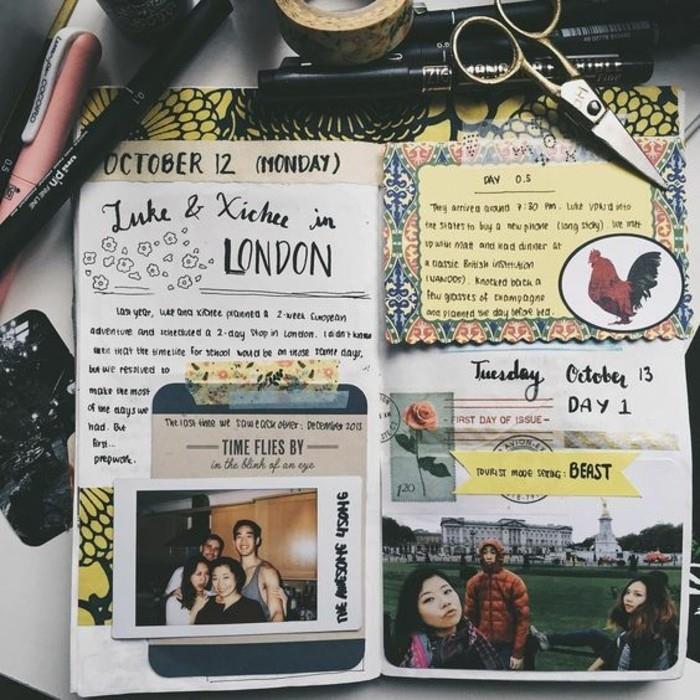 OCTOBER 12 (MONDAY)
Luke & Xichee in
LONDON
last year, Luke and Xichee planned a 2-week European
adventure and scheduled a 2-day stop in London. I didn't know
that the timeline for school would be on those same days,
but we resolved to
make the most
of the days we
had. But
first...
prepwork.
The last time we saw each other: December 2013
TIME FLIES BY
in the blink of an eye
THE AWESOME 4SOME
DAY 0.5
They arrived around 7:30 PM. Luke VPN'd into
the states to buy a new phone (long story). We met
up with Matt and had dinner at
a classic British institution
(NANDOS). Knocked back a
few glasses of champagne
and planned the day before bed.
Tuesday October 13
DAY 1
FIRST DAY OF ISSUE
AVION
120
TOURIST MODE SETTING: BEAST
uni pin FINE LINE
0.1
0.5